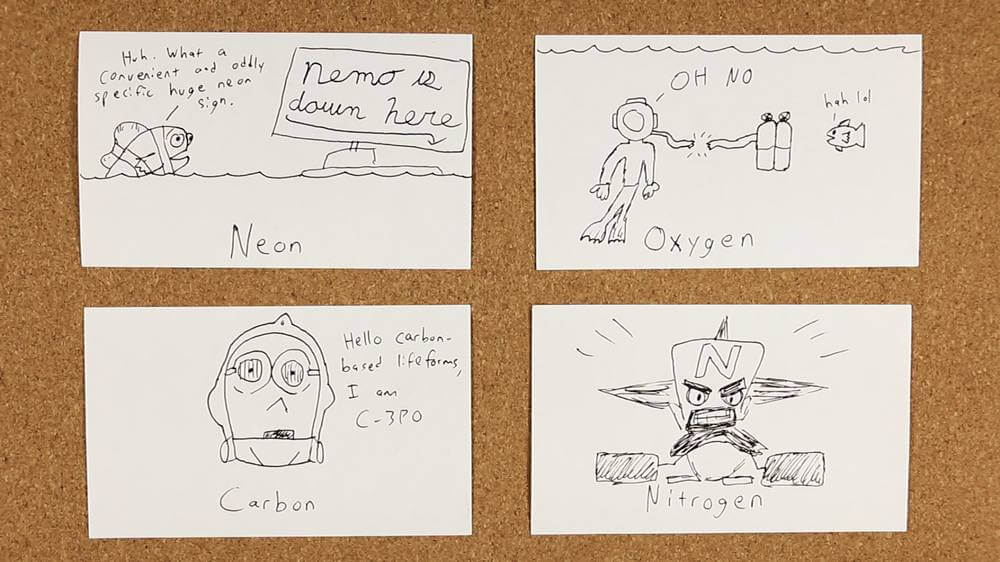 Huh. What a
convenient and oddly
specific huge neon
sign.
nemo is
down here
Neon
OH NO
hah lol
Oxygen
Hello carbon-
based lifeforms,
I am
C-3PO
Carbon
N
Nitrogen